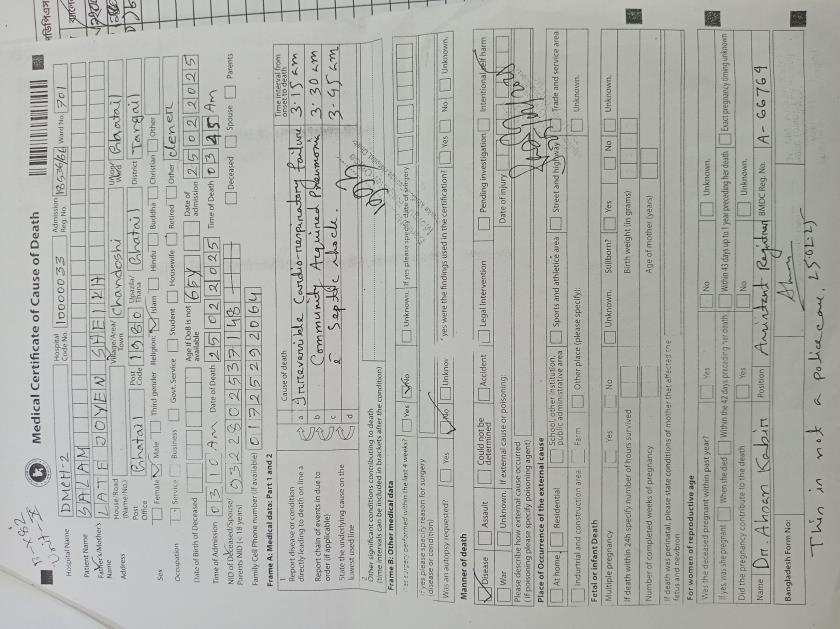 Medical Certificate of Cause of Death
Hospital Name DMCH-2 Hospital Code No. 1000033 Admission Reg. No. 18536/66 Ward No. 701
Patient Name SALAM
Father's/Mother's Name LATE JOYEN SHEIKH
Address House/Road Name/No. Village/Area/Town Chandoshi Union/Ward Bhatail
Post Office Bhatail Post Code 1980 Upazila/Thana Bhatail District Tangail
Sex Female Male Third gender Religion: Islam Hindu Buddha Christian Other
Occupation Service Business Govt. Service Student Housewife Retired Other
Date of Birth of Deceased Age if DoB is not available 65Y Date of admission 25022025
Time of Admission 0310 Am Date of Death 25022025 Time of Death 0345 Am
NID of Deceased/Spouse/Parents NID (< 18 years) 0322802537148 Deceased Spouse Parents
Family Cell Phone number (if available) 01725292064
Frame A: Medical data: Part 1 and 2
1 Report disease or condition directly leading to death on line a
Report chain of events in due to order (if applicable)
State the underlying cause on the lowest used line
Cause of death Time interval from onset to death
a Irreversible Cardio-respiratory failure 3.15 am
b Community Acquired Pneumonia 3.30 am
c c̄ Septic shock. 3.45 am
d
2 Other significant conditions contributing to death (time intervals can be included in brackets after the condition)
Frame B: Other medical data
Was surgery performed within the last 4 weeks? Yes No Unknown If yes please specify date of surgery
If yes please specify reason for surgery (disease or condition)
Was an autopsy requested? Yes No Unknown If yes were the findings used in the certification? Yes No Unknown.
Manner of death
Disease Assault Could not be determined Accident Legal Intervention Pending investigation Intentional self harm
War Unknown. If external cause or poisoning: Date of injury
Please describe how external cause occurred (If poisoning please specify poisoning agent)
Place of Occurrence of the external cause
At home Residential School, other institution, public administrative area Sports and athletics area Street and highway Trade and service area
Industrial and construction area Farm Other place (please specify): Unknown.
Fetal or infant Death
Multiple pregnancy Yes No Unknown. Stillborn? Yes No Unknown.
If death within 24h specify number of hours survived Birth weight (in grams)
Number of completed weeks of pregnancy Age of mother (years)
If death was perinatal, please state conditions of mother that affected the fetus and newborn
For women of reproductive age
Was the deceased pregnant within past year? Yes No Unknown.
If yes, was she pregnant When she died Within the 42 days preceding her death Within 43 days up to 1 year preceding her death Exact pregnancy timing unknown
Did the pregnancy contribute to the death Yes No Unknown.
Name: Dr. Ahsan Kabir Position Assistant Registrar BMDC Reg. No. A-66769
Bangladesh Form No:
This is not a police case. 25.02.25